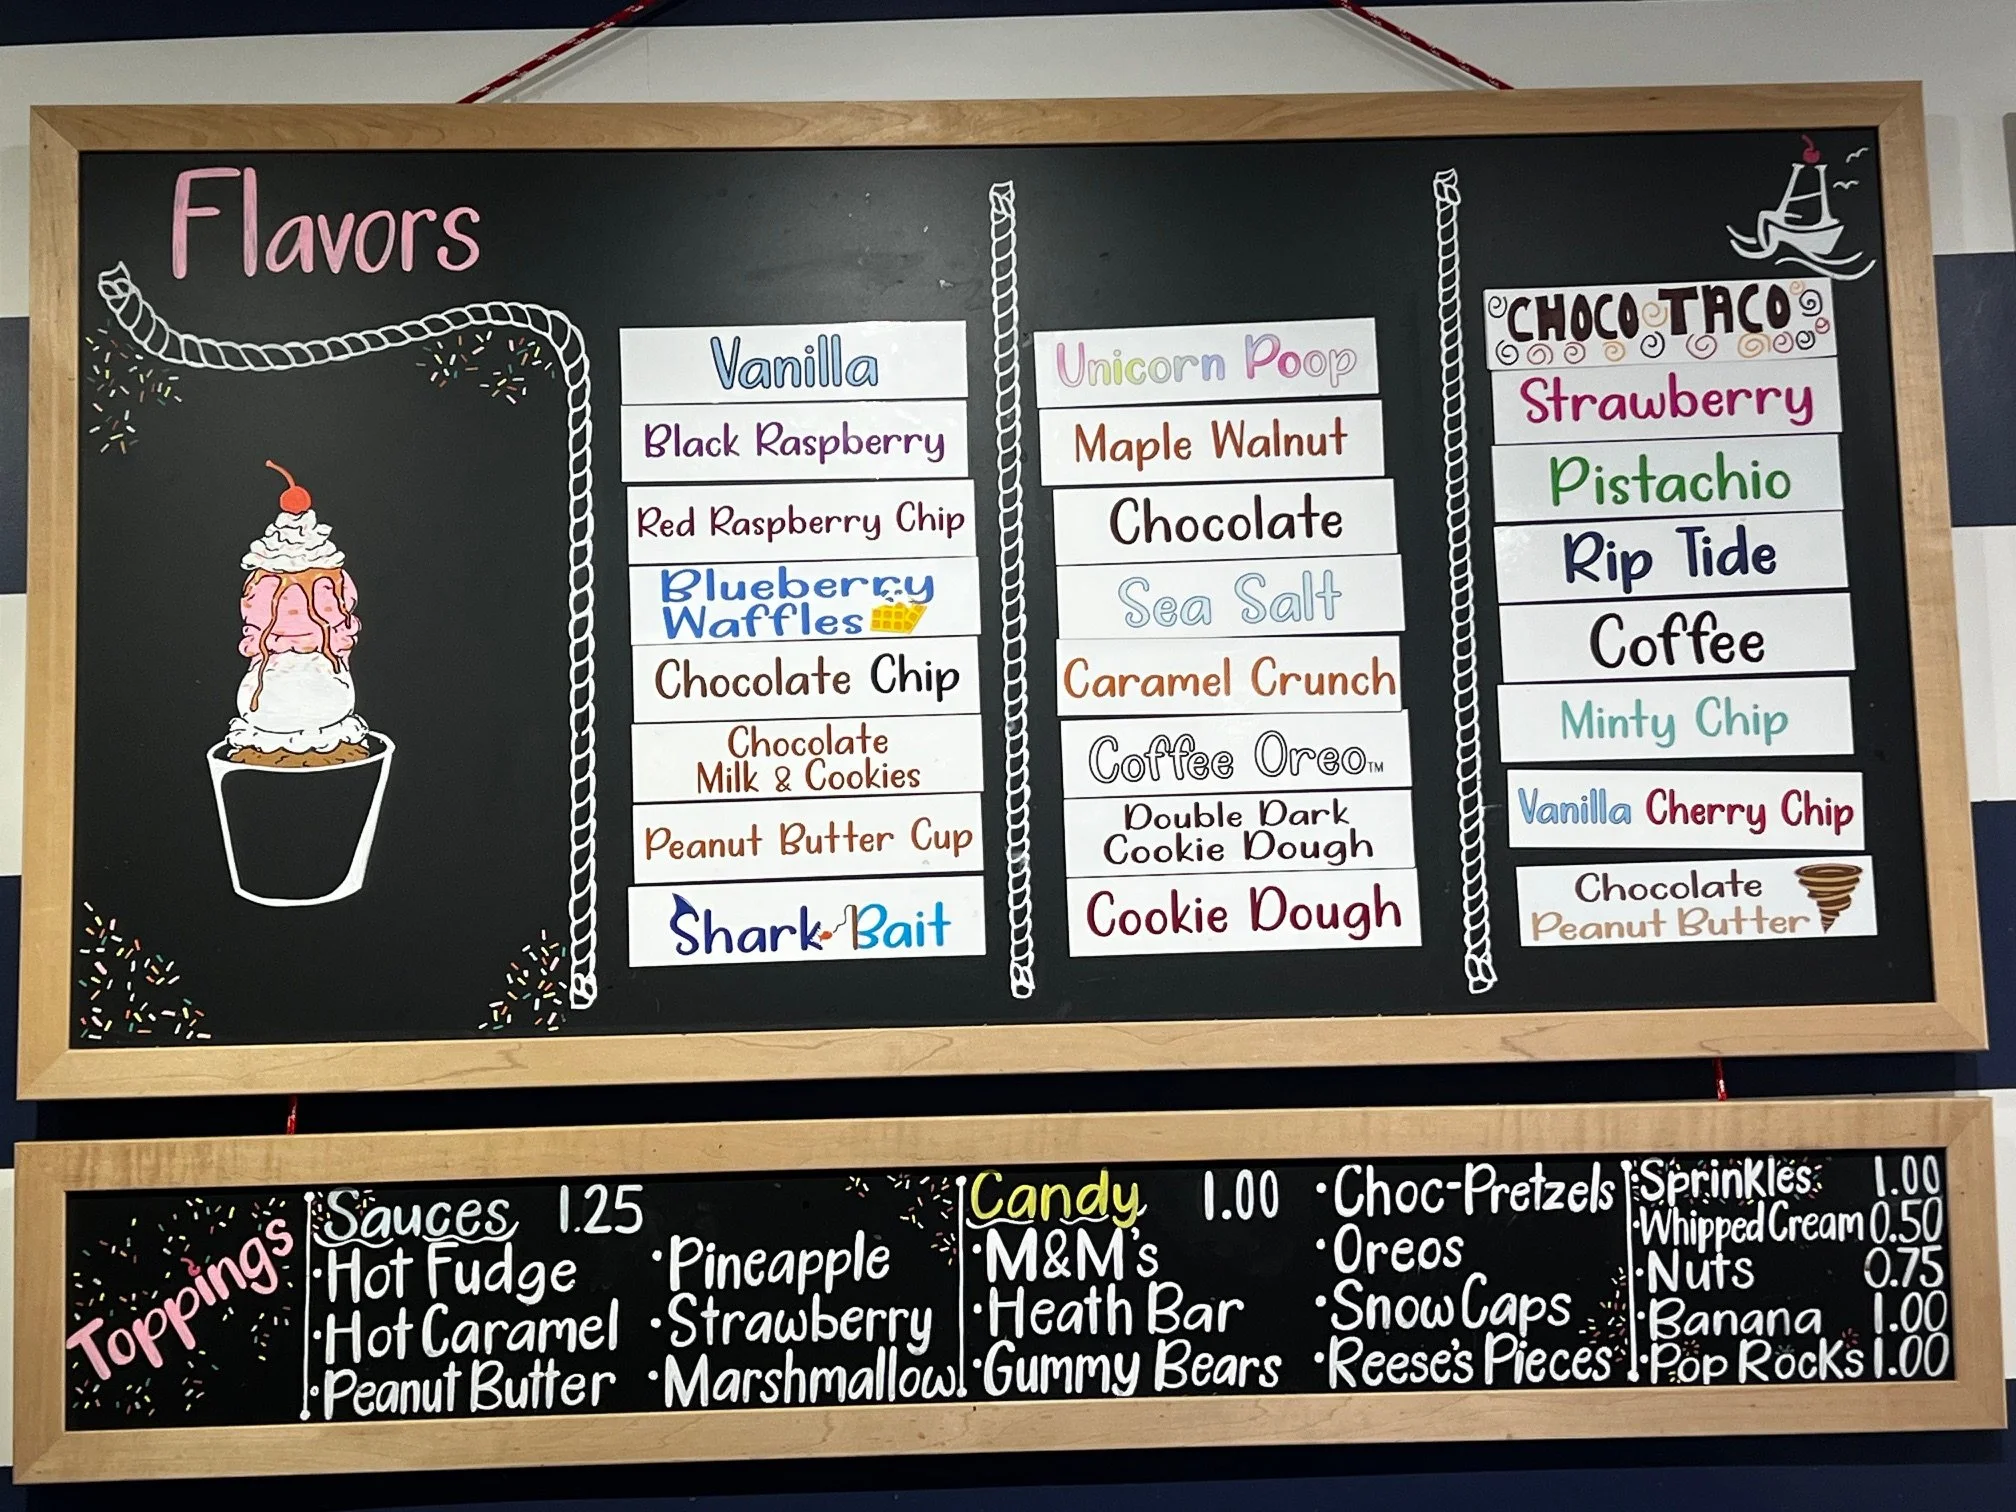 Flavors
Vanilla
Black Raspberry
Red Raspberry Chip
Blueberry
Waffles
Chocolate Chip
Chocolate
Milk & Cookies
Peanut Butter Cup
Shark Bait
Unicorn Poop
Maple Walnut
Chocolate
Sea Salt
Caramel Crunch
Coffee Oreo™
Double Dark
Cookie Dough
Cookie Dough
CHOCO TACO
Strawberry
Pistachio
Rip Tide
Coffee
Minty Chip
Vanilla Cherry Chip
Chocolate
Peanut Butter
Toppings
Sauces 1.25
·Hot Fudge
·Hot Caramel
·Peanut Butter
·Pineapple
·Strawberry
·Marshmallow
Candy 1.00
·M&M's
·Heath Bar
·Gummy Bears
·Choc-Pretzels
·Oreos
·Snow Caps
·Reese's Pieces
·Sprinkles 1.00
·Whipped Cream 0.50
·Nuts 0.75
·Banana 1.00
·Pop Rocks 1.00